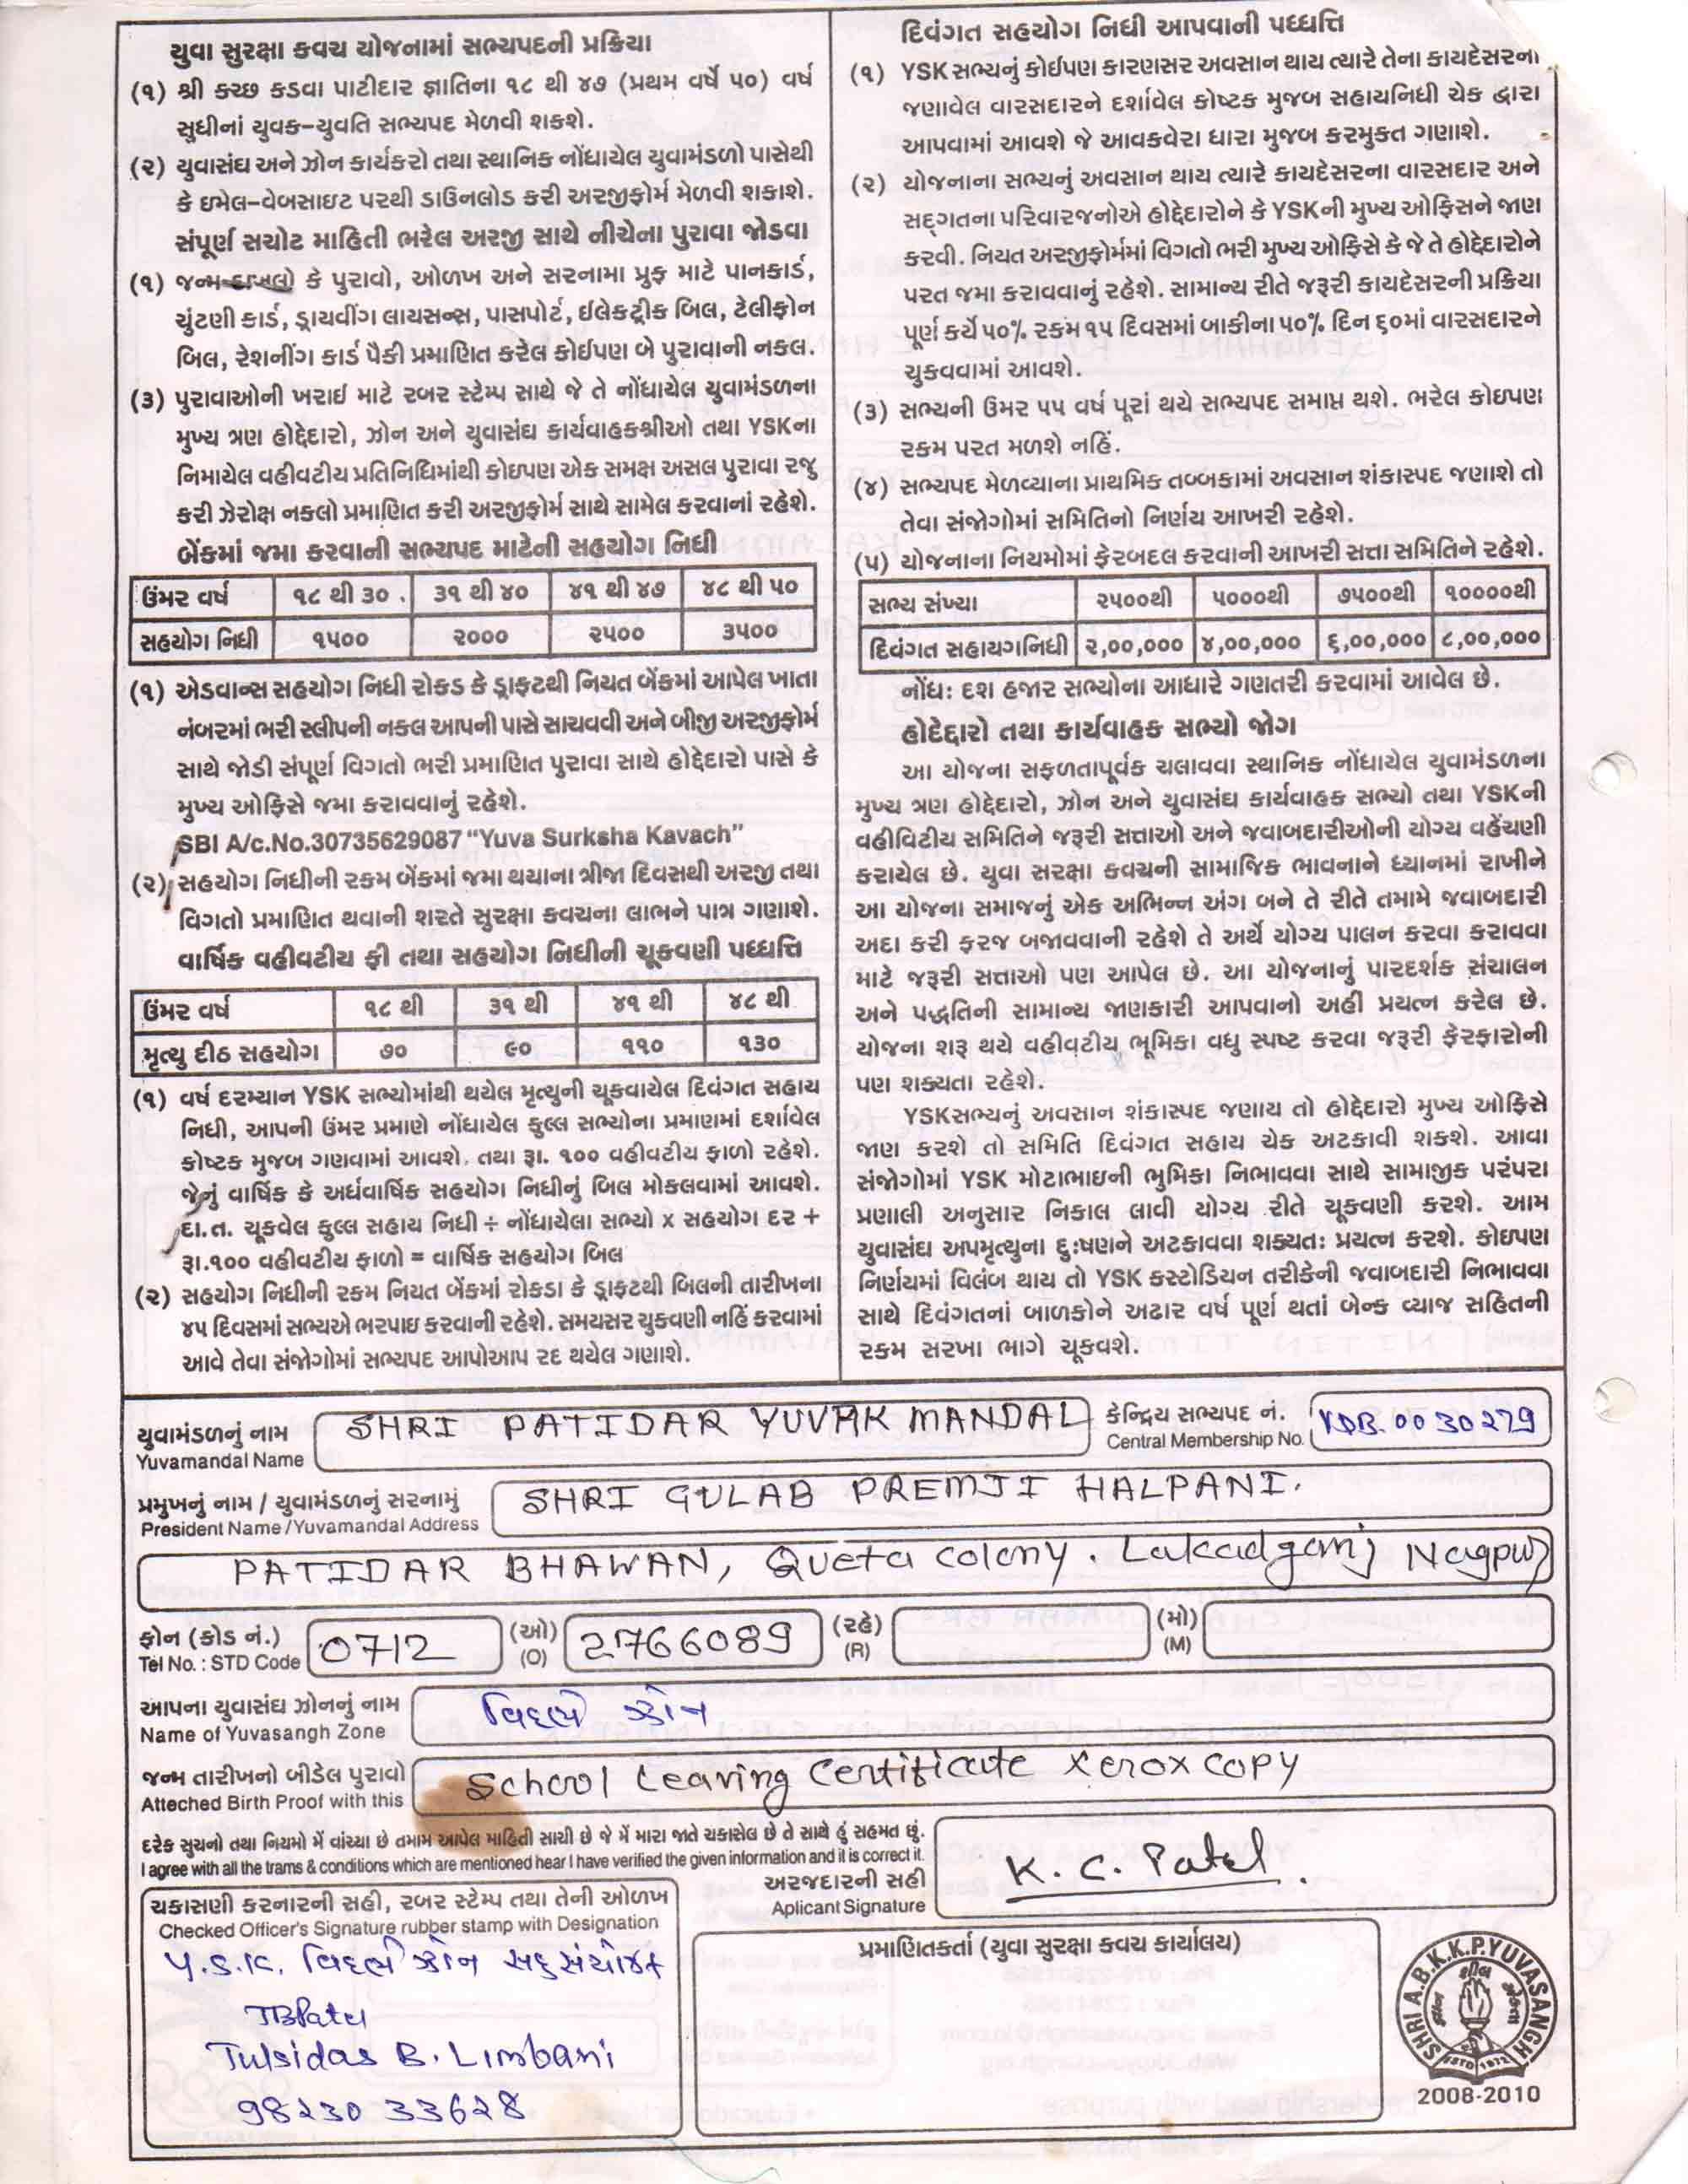 યુવા સુરક્ષા કવચ યોજનામાં સભ્યપદની પ્રક્રિયા
(૧) શ્રી કચ્છ કડવા પાટીદાર જ્ઞાતિના ૧૮ થી ૪૭ (પ્રથમ વર્ષે ૫૦) વર્ષ
સુધીનાં યુવક-યુવતિ સભ્યપદ મેળવી શકશે.
(૨) યુવાસંઘ અને ઝોન કાર્યકરો તથા સ્થાનિક નોંધાયેલ યુવામંડળો પાસેથી
કે ઇમેલ-વેબસાઇટ પરથી ડાઉનલોડ કરી અરજીફોર્મ મેળવી શકાશે.
સંપૂર્ણ સચોટ માહિતી ભરેલ અરજી સાથે નીચેના પુરાવા જોડવા
(૧) જન્મ દાખલો કે પુરાવો, ઓળખ અને સરનામા પ્રુફ માટે પાનકાર્ડ,
ચુંટણી કાર્ડ, ડ્રાયવીંગ લાયસન્સ, પાસપોર્ટ, ઈલેક્ટ્રીક બિલ, ટેલીફોન
બિલ, રેશનીંગ કાર્ડ પૈકી પ્રમાણિત કરેલ કોઈપણ બે પુરાવાની નકલ.
(૩) પુરાવાઓની ખરાઈ માટે રબર સ્ટેમ્પ સાથે જે તે નોંધાયેલ યુવામંડળના
મુખ્ય ત્રણ હોદ્દેદારો, ઝોન અને યુવાસંઘ કાર્યવાહકશ્રીઓ તથા YSKના
નિમાયેલ વહીવટીય પ્રતિનિધિમાંથી કોઇપણ એક સમક્ષ અસલ પુરાવા રજુ
કરી ઝેરોક્ષ નકલો પ્રમાણિત કરી અરજીફોર્મ સાથે સામેલ કરવાનાં રહેશે.
બેંકમાં જમા કરવાની સભ્યપદ માટેની સહયોગ નિધી
ઉંમર વર્ષ ૧૮ થી ૩૦ . ૩૧ થી ૪૦ ૪૧ થી ૪૭ ૪૮ થી ૫૦
સહયોગ નિધી ૧૫૦૦ ૨૦૦૦ ૨૫૦૦ ૩૫૦૦
(૧) એડવાન્સ સહયોગ નિધી રોકડ કે ડ્રાફ્ટથી નિયત બેંકમાં આપેલ ખાતા
નંબરમાં ભરી સ્લીપની નકલ આપની પાસે સાચવવી અને બીજી અરજીફોર્મ
સાથે જોડી સંપૂર્ણ વિગતો ભરી પ્રમાણિત પુરાવા સાથે હોદ્દેદારો પાસે કે
મુખ્ય ઓફિસે જમા કરાવવાનું રહેશે.
SBI A/c.No.30735629087 “Yuva Surksha Kavach”
(૨) સહયોગ નિધીની રકમ બેંકમાં જમા થયાના ત્રીજા દિવસથી અરજી તથા
વિગતો પ્રમાણિત થવાની શરતે સુરક્ષા કવચના લાભને પાત્ર ગણાશે.
વાર્ષિક વહીવટીય ફી તથા સહયોગ નિધીની ચૂકવણી પધ્ધતિ
ઉંમર વર્ષ ૧૮ થી ૩૧ થી ૪૧ થી ૪૮ થી
મૃત્યુ દીઠ સહયોગ ૭૦ ૯૦ ૧૧૦ ૧૩૦
(૧) વર્ષ દરમ્યાન YSK સભ્યોમાંથી થયેલ મૃત્યુની ચૂકવાયેલ દિવંગત સહાય
નિધી, આપની ઉંમર પ્રમાણે નોંધાયેલ કુલ્લ સભ્યોના પ્રમાણમાં દર્શાવેલ
કોષ્ટક મુજબ ગણવામાં આવશે. તથા રૂા. ૧૦૦ વહીવટીય ફાળો રહેશે.
જેનું વાર્ષિક કે અર્ધવાર્ષિક સહયોગ નિધીનું બિલ મોકલવામાં આવશે.
દા.ત. ચૂકવેલ કુલ્લ સહાય નિધી ÷ નોંધાયેલા સભ્યો x સહયોગ દર +
રૂા.૧૦૦ વહીવટીય ફાળો = વાર્ષિક સહયોગ બિલ
(૨) સહયોગ નિધીની રકમ નિયત બેંકમાં રોકડા કે ડ્રાફ્ટથી બિલની તારીખના
૪૫ દિવસમાં સભ્યએ ભરપાઇ કરવાની રહેશે. સમયસર ચુકવણી નહિં કરવામાં
આવે તેવા સંજોગોમાં સભ્યપદ આપોઆપ રદ થયેલ ગણાશે.
દિવંગત સહયોગ નિધી આપવાની પધ્ધત્તિ
(૧) YSK સભ્યનું કોઈપણ કારણસર અવસાન થાય ત્યારે તેના કાયદેસરના
જણાવેલ વારસદારને દર્શાવેલ કોષ્ટક મુજબ સહાયનિધી ચેક દ્વારા
આપવામાં આવશે જે આવકવેરા ધારા મુજબ કરમુક્ત ગણાશે.
(૨) યોજનાના સભ્યનું અવસાન થાય ત્યારે કાયદેસરના વારસદાર અને
સદ્ગતના પરિવારજનોએ હોદ્દેદારોને કે YSKની મુખ્ય ઓફિસને જાણ
કરવી. નિયત અરજીફોર્મમાં વિગતો ભરી મુખ્ય ઓફિસે કે જે તે હોદ્દેદારોને
પરત જમા કરાવવાનું રહેશે. સામાન્ય રીતે જરૂરી કાયદેસરની પ્રક્રિયા
પૂર્ણ કર્યે ૫૦% રકમ ૧૫ દિવસમાં બાકીના ૫૦% દિન ૬૦માં વારસદારને
ચુકવવામાં આવશે.
(૩) સભ્યની ઉમર ૫૫ વર્ષ પૂરાં થયે સભ્યપદ સમાપ્ત થશે. ભરેલ કોઇપણ
રકમ પરત મળશે નહિં.
(૪) સભ્યપદ મેળવ્યાના પ્રાથમિક તબ્બકામાં અવસાન શંકાસ્પદ જણાશે તો
તેવા સંજોગોમાં સમિતિનો નિર્ણય આખરી રહેશે.
(૫) યોજનાના નિયમોમાં ફેરબદલ કરવાની આખરી સત્તા સમિતિને રહેશે.
સભ્ય સંખ્યા ૨૫૦૦થી ૫૦૦૦થી ૭૫૦૦થી ૧૦૦૦૦થી
દિવંગત સહાયગનિધી ૨,૦૦,૦૦૦ ૪,૦૦,૦૦૦ ૬,૦૦,૦૦૦ ૮,૦૦,૦૦૦
નોંધ: દશ હજાર સભ્યોના આધારે ગણતરી કરવામાં આવેલ છે.
હોદેદ્દારો તથા કાર્યવાહક સભ્યો જોગ
આ યોજના સફળતાપૂર્વક ચલાવવા સ્થાનિક નોંધાયેલ યુવામંડળના
મુખ્ય ત્રણ હોદ્દેદારો, ઝોન અને યુવાસંઘ કાર્યવાહક સભ્યો તથા YSKની
વહીવિટીય સમિતિને જરૂરી સત્તાઓ અને જવાબદારીઓની યોગ્ય વહેંચણી
કરાયેલ છે. યુવા સરક્ષા કવચની સામાજિક ભાવનાને ધ્યાનમાં રાખીને
આ યોજના સમાજનું એક અભિન્ન અંગ બને તે રીતે તમામે જવાબદારી
અદા કરી ફરજ બજાવવાની રહેશે તે અર્થે યોગ્ય પાલન કરવા કરાવવા
માટે જરૂરી સત્તાઓ પણ આપેલ છે. આ યોજનાનું પારદર્શક સંચાલન
અને પદ્ધતિની સામાન્ય જાણકારી આપવાનો અહી પ્રયત્ન કરેલ છે.
યોજના શરૂ થયે વહીવટીય ભૂમિકા વધુ સ્પષ્ટ કરવા જરૂરી ફેરફારોની
પણ શક્યતા રહેશે.
YSKસભ્યનું અવસાન શંકાસ્પદ જણાય તો હોદ્દેદારો મુખ્ય ઓફિસે
જાણ કરશે તો સમિતિ દિવંગત સહાય ચેક અટકાવી શકશે. આવા
સંજોગોમાં YSK મોટાભાઇની ભુમિકા નિભાવવા સાથે સામાજીક પરંપરા
પ્રણાલી અનુસાર નિકાલ લાવી યોગ્ય રીતે ચૂકવણી કરશે. આમ
યુવાસંઘ અપમૃત્યુના દુ:ષણને અટકાવવા શક્યત: પ્રયત્ન કરશે. કોઇપણ
નિર્ણયમાં વિલંબ થાય તો YSK કસ્ટોડિયન તરીકેની જવાબદારી નિભાવવા
સાથે દિવંગતનાં બાળકોને અઢાર વર્ષ પૂર્ણ થતાં બેન્ક વ્યાજ સહિતની
રકમ સરખા ભાગે ચૂકવશે.
યુવામંડળનું નામ SHRI PATIDAR YUVAK MANDAL કેન્દ્રિય સભ્યપદ નં.
Yuvamandal Name Central Membership No. 0030279
પ્રમુખનું નામ / યુવામંડળનું સરનામું SHRI GULAB PREMJI HALPANI.
President Name/Yuvamandal Address
PATIDAR BHAWAN, Queta colony. Lakadganj Nagpur
ફોન (કોડ નં.) 0712 (ઓ) 2766089 (રહે) (મો)
Tel No. : STD Code (O) (R) (M)
આપના યુવાસંઘ ઝોનનું નામ વિદર્ભ ઝોન
Name of Yuvasangh Zone
જન્મ તારીખનો બીડેલ પુરાવો School Leaving Certificate Xerox copy
Atteched Birth Proof with this
દરેક સુચનો તથા નિયમો મેં વાંચ્યા છે તમામ આપેલ માહિતી સાચી છે જે મેં મારા જાતે ચકાસેલ છે તે સાથે હું સહમત છું.
I agree with all the trams & conditions which are mentioned hear I have verified the given information and it is correct it.
અરજદારની સહી K. C. Patel.
Aplicant Signature
ચકાસણી કરનારની સહી, રબર સ્ટેમ્પ તથા તેની ઓળખ
Checked Officer's Signature rubber stamp with Designation
Y.S.K. વિદર્ભ ઝોન સહસંયોજક
TBPatel
Tulsidas B. Limbani
98230 33628
પ્રમાણિતકર્તા (યુવા સુરક્ષા કવચ કાર્યાલય)
SHRI A.B.K.K.P.YUVASANGH
ESTD 1972
2008-2010